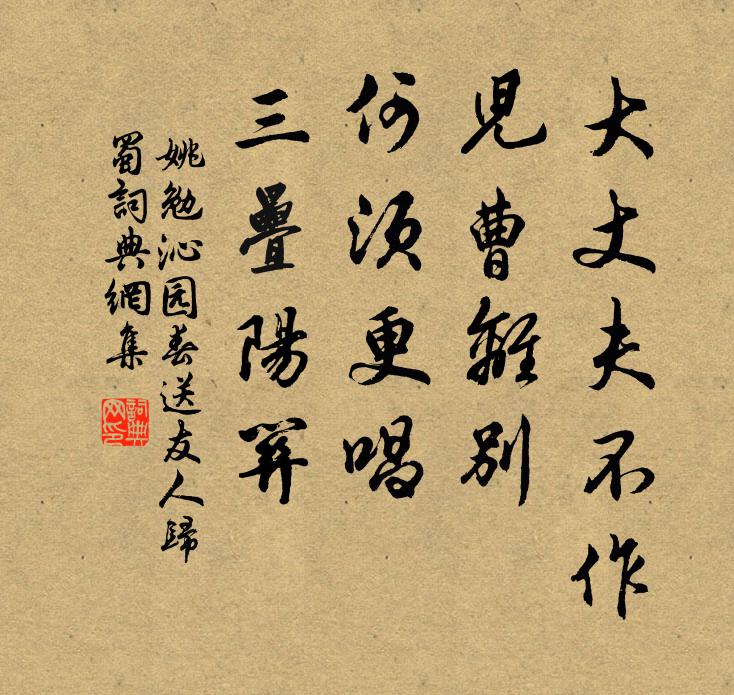 大丈夫不作
兒曹離別
何須更唱
三疊陽關
姚勉沁园春送友人歸
蜀詞典網集
詞典
网印